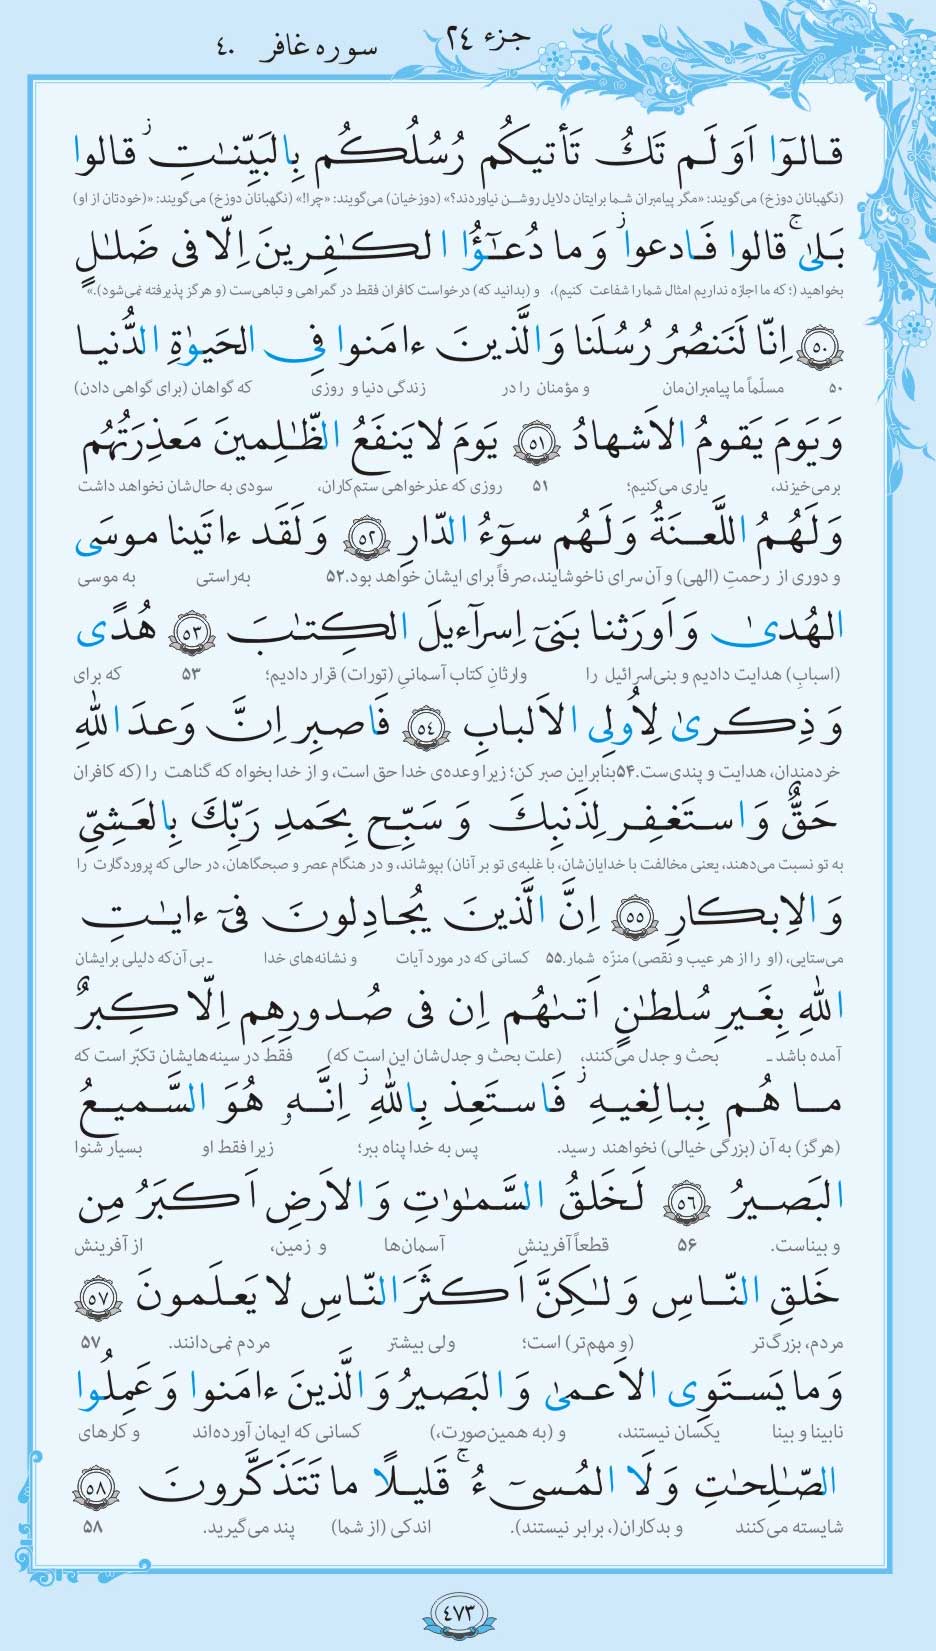 جزء ۲۴
سوره غافر ۴۰
قالوٓا اَوَلَم تَكُ تَأتيكُم رُسُلُكُم بِالبَيِّنٰتِ ۖ قالوا
(نگهبانان دوزخ) می‌گویند: «مگر پیامبران شما برایتان دلایل روشن نیاوردند؟» (دوزخیان) می‌گویند: «چرا!» (نگهبانان دوزخ) می‌گویند: «(خودتان از او)
بَلىٰ ۚ قالوا فَادعوا ۗ وَما دُعـٰٓؤُا الكـٰفِرينَ اِلّا فى ضَلـٰلٍ
بخواهید (؛ که ما اجازه نداریم امثال شما را شفاعت کنیم)، و (بدانید که) درخواست کافران فقط در گمراهی و تباهی‌ست (و هرگز پذیرفته نمی‌شود).»
﴿٥٠﴾ اِنّا لَنَنصُرُ رُسُلَنا وَالَّذينَ ءامَنوا فِى الحَيوٰةِ الدُّنيا
۵۰ مسلّماً ما پیامبران‌مان و مؤمنان را در زندگی دنیا و روزی که گواهان (برای گواهی دادن)
وَيَومَ يَقومُ الاَشهادُ ﴿٥١﴾ يَومَ لا يَنفَعُ الظّـٰلِمينَ مَعذِرَتُهُم
برمی‌خیزند، یاری می‌کنیم؛ ۵۱ روزی که عذرخواهی ستم‌کاران، سودی به حال‌شان نخواهد داشت
وَلَهُمُ اللَّعنَةُ وَلَهُم سوٓءُ الدّارِ ﴿٥٢﴾ وَلَقَد ءاتَينا موسَى
و دوری از رحمتِ (الهی) و آن سرای ناخوشایند، صرفاً برای ایشان خواهد بود. ۵۲ به‌راستی به موسی
الهُدىٰ وَاَورَثنا بَنىٓ اِسرآءيلَ الكِتـٰبَ ﴿٥٣﴾ هُدًى
(اسبابِ) هدایت دادیم و بنی‌اسرائیل را وارثانِ کتاب آسمانیِ (تورات) قرار دادیم؛ ۵۳ که برای
وَذِكرىٰ لِاُولِى الاَلبابِ ﴿٥٤﴾ فَاصبِر اِنَّ وَعدَ اللّٰهِ
خردمندان، هدایت و پندی‌ست. ۵۴ بنابراین صبر کن؛ زیرا وعده‌ی خدا حق است، و از خدا بخواه که گناهت را (که کافران
حَقٌّ وَاستَغفِر لِذَنبِكَ وَسَبِّح بِحَمدِ رَبِّكَ بِالعَشِىِّ
به تو نسبت می‌دهند، یعنی مخالفت با خدایان‌شان، با غلبه‌ی تو بر آنان) بپوشاند، و در هنگام عصر و صبحگاهان، در حالی که پروردگارت را
وَالاِبكارِ ﴿٥٥﴾ اِنَّ الَّذينَ يُجادِلونَ فىٓ ءايـٰتِ
می‌ستایی، (او را از هر عیب و نقصی) منزّه شمار. ۵۵ کسانی که در مورد آیات و نشانه‌های خدا ـ بی آن‌که دلیلی برایشان
اللّٰهِ بِغَيرِ سُلطـٰنٍ اَتـٰىهُم اِن فى صُدورِهِم اِلّا كِبرٌ
آمده باشد ـ بحث و جدل می‌کنند، (علت بحث و جدل‌شان این است که) فقط در سینه‌هایشان تکبّر است که
ما هُم بِبالِغيهِ ۗ فَاستَعِذ بِاللّٰهِ ۗ اِنَّهٗ هُوَ السَّميعُ
(هرگز) به آن (بزرگی خیالی) نخواهند رسید. پس به خدا پناه ببر؛ زیرا فقط او بسیار شنوا
البَصيرُ ﴿٥٦﴾ لَخَلقُ السَّمـٰوٰتِ وَالاَرضِ اَكبَرُ مِن
و بیناست. ۵۶ قطعاً آفرینش آسمان‌ها و زمین، از آفرینش
خَلقِ النّاسِ وَلـٰكِنَّ اَكثَرَ النّاسِ لا يَعلَمونَ ﴿٥٧﴾
مردم، بزرگ‌تر (و مهم‌تر) است؛ ولی بیشتر مردم نمی‌دانند. ۵۷
وَما يَستَوِى الاَعمىٰ وَالبَصيرُ وَالَّذينَ ءامَنوا وَعَمِلُوا
نابینا و بینا یکسان نیستند، و (به همین‌صورت،) کسانی که ایمان آورده‌اند و کارهای
الصّـٰلِحـٰتِ وَلَا المُسىٓءُ ۚ قَليلًا ما تَتَذَكَّرونَ ﴿٥٨﴾
شایسته می‌کنند و بدکاران(، برابر نیستند). اندکی (از شما) پند می‌گیرید. ۵۸
٤٧٣